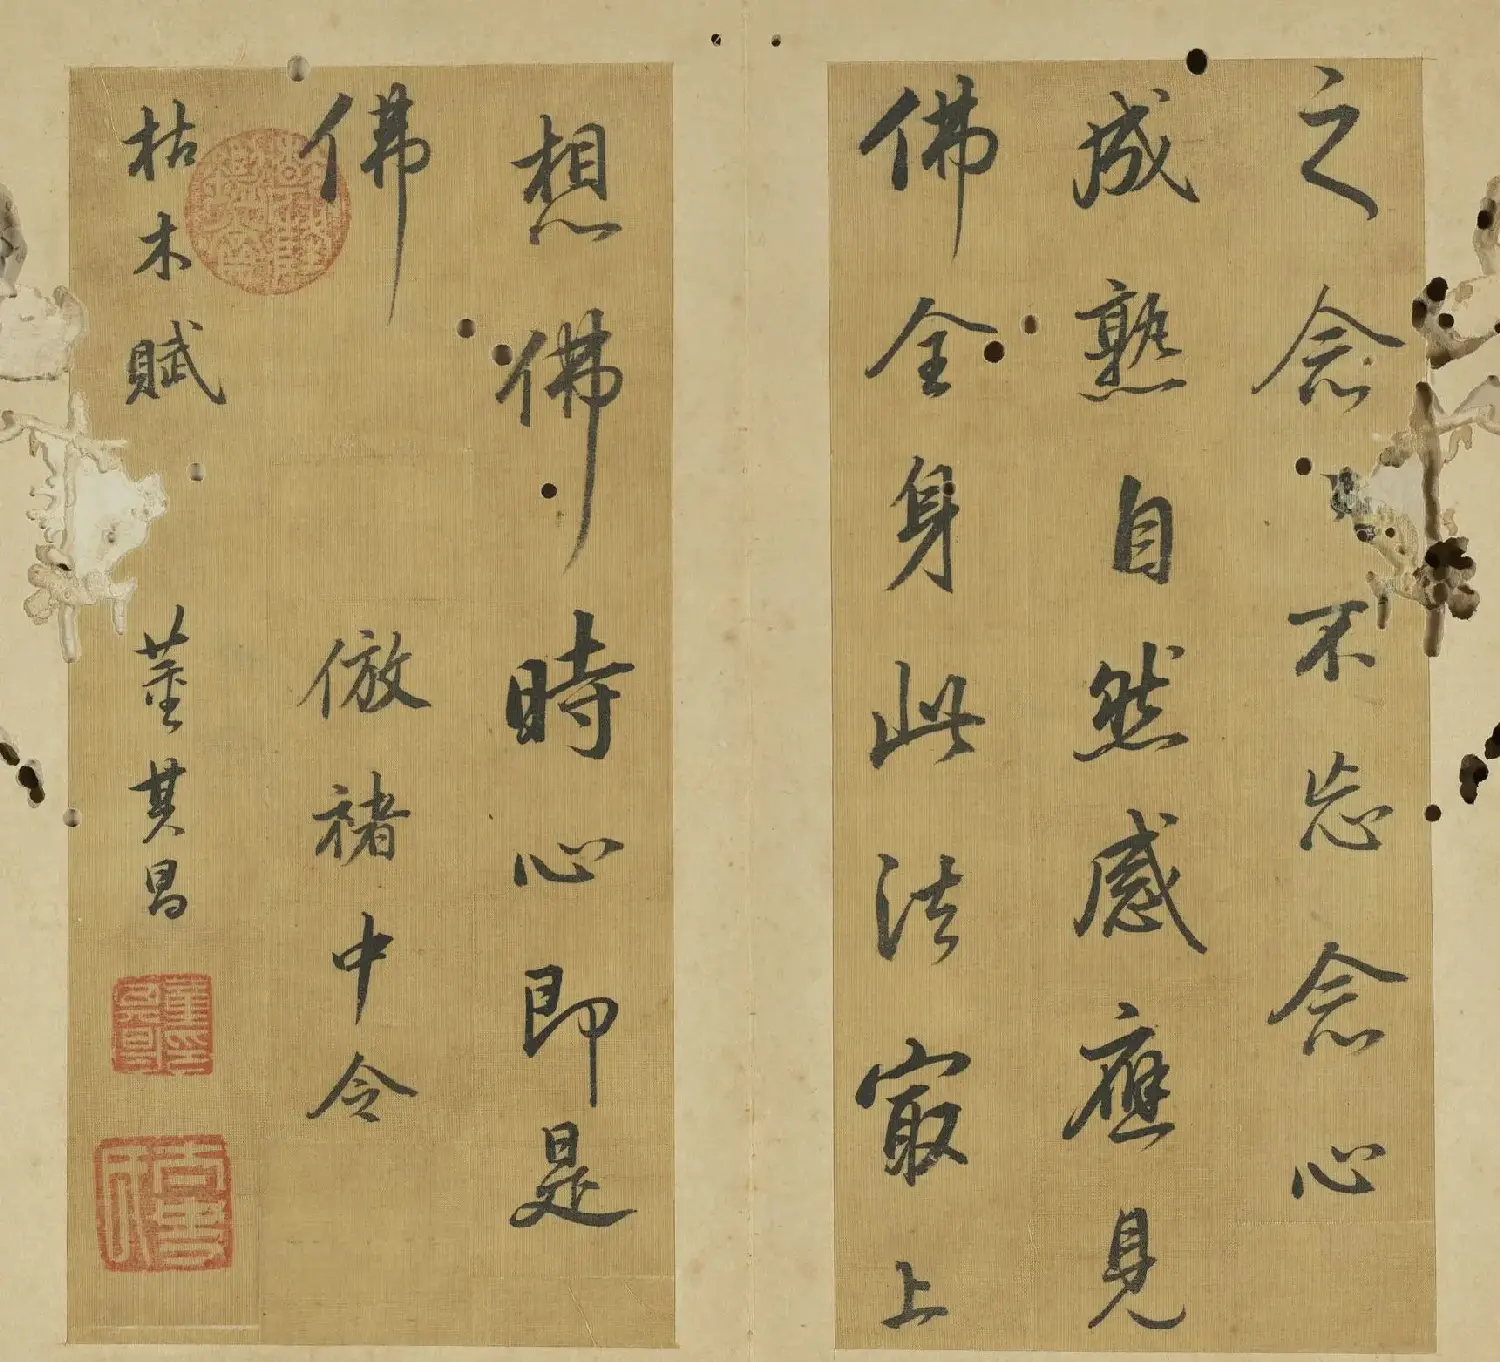 之念不忘念心
成熟自然感應見
佛全身此法最上
想佛時心即是
佛 倣褚中令
枯木賦 董其昌